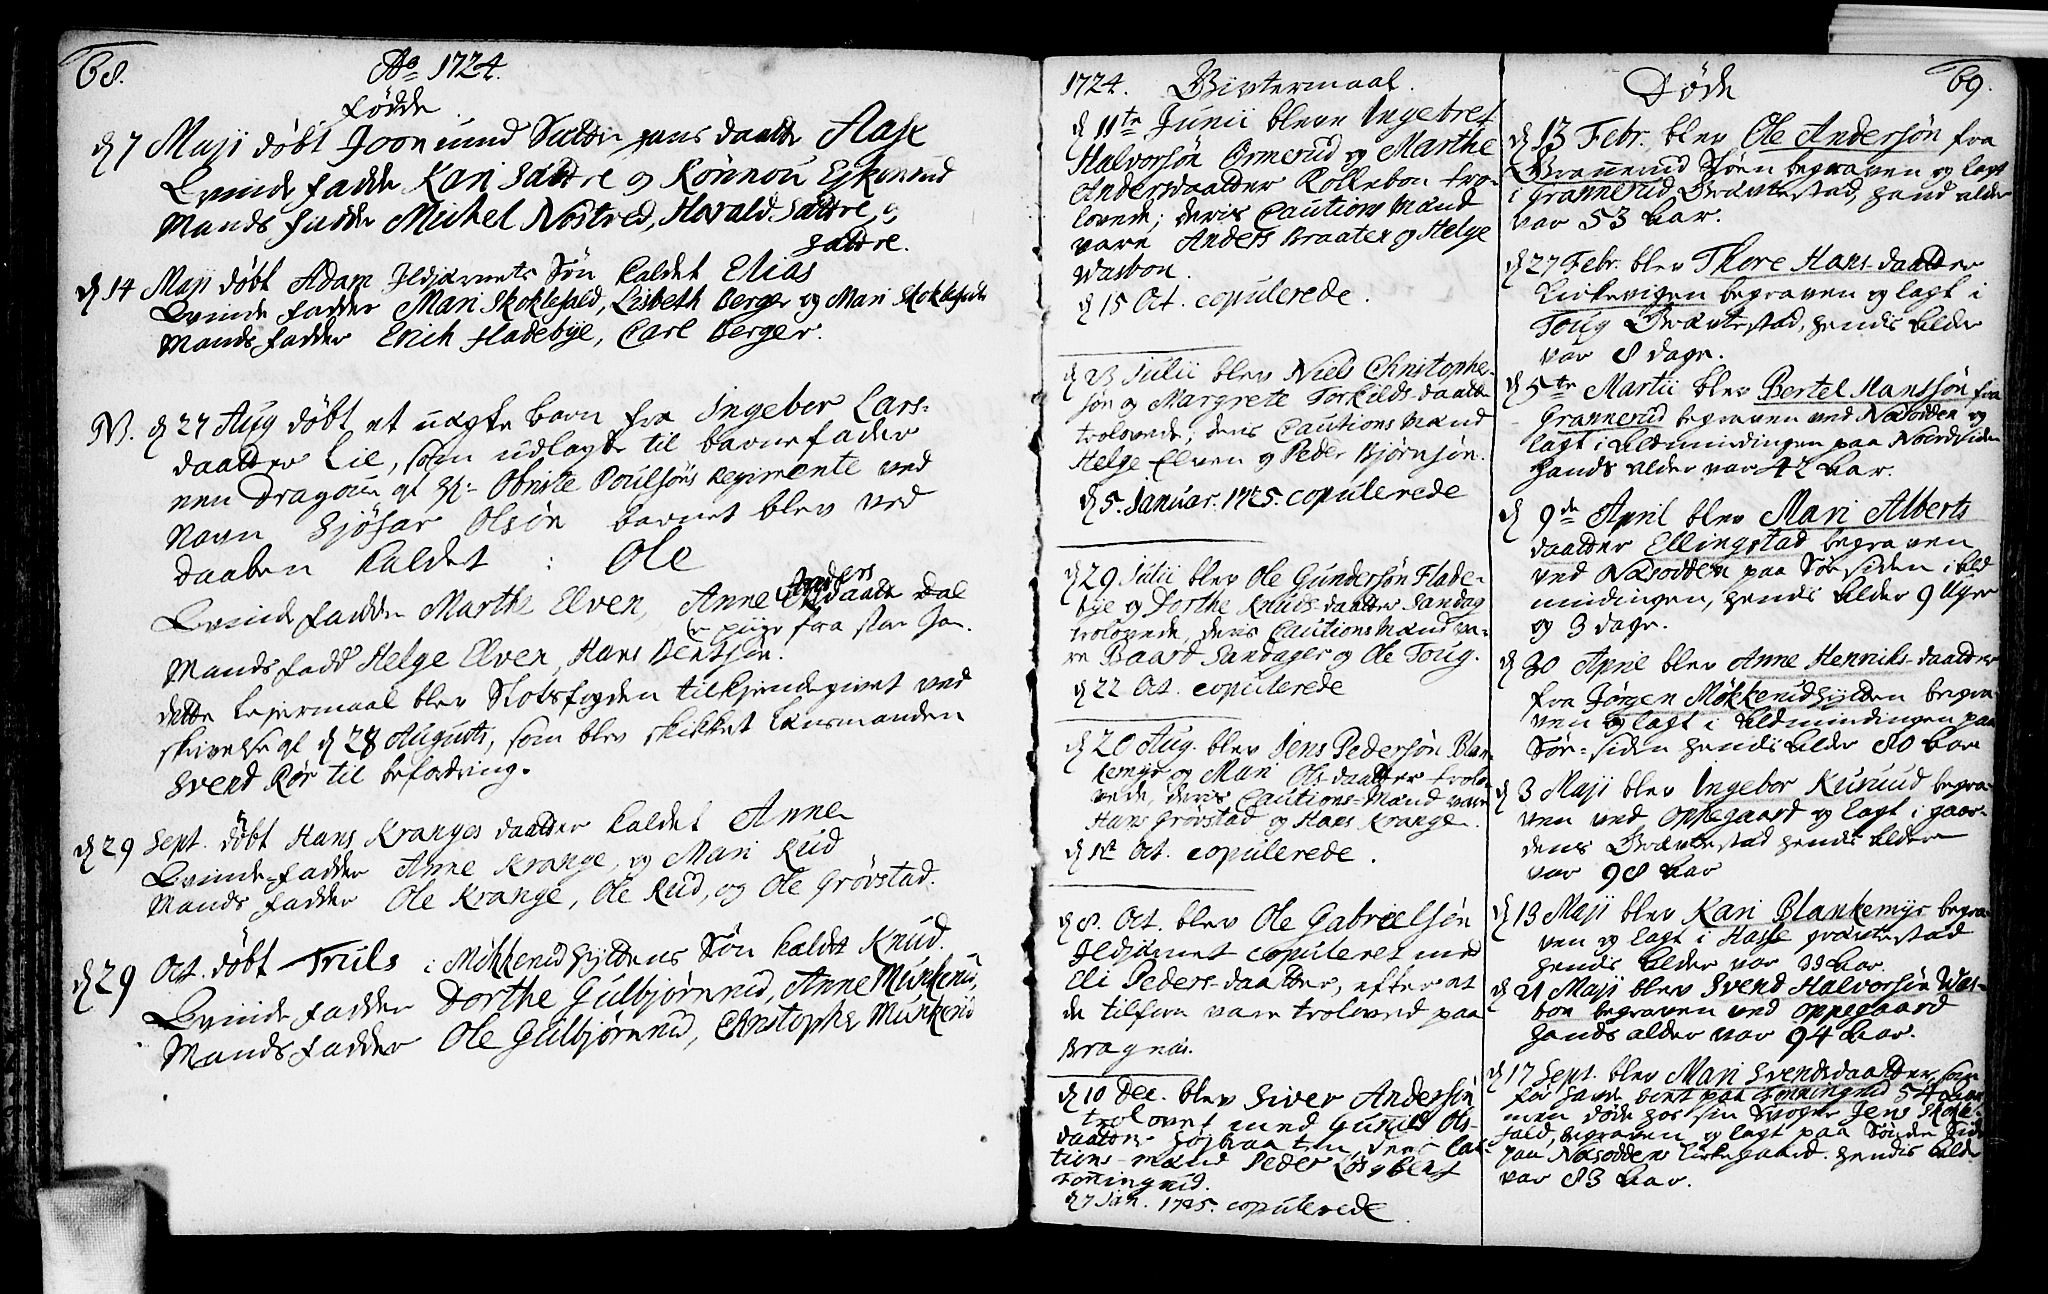 68.
Ao 1724.
Fødde
d 7 Maji døbt Joon unnd Sættre hans daatter Aase
Qvinde fadder Kari Sættre og Rønnou Ejkerud
Mands fadder Michel Nostved, Harald Sættre, og
Sættre.
d 14 Maji døbt Adam Ildjærnets Søn kaldet Elias
Qvinde fadder Mari Skoklefald, Lisbeth Berger og Mari Skoklefald
Mands fadder Erich Fladebye, Carl Berger.
NB. d 27 Aug døbt et uægte barn fra Ingebor Lars-
daatter Lie, som udlagte til barnefader
een Dragoun af Hr. Obriste Poulsøns Regimente ved
Navn Sjøfar Olsøn barnet blev ved
daaben kaldet : Ole
Anders
Qvinde fadder Marthe Elven, Anne daatt Dal
en piige fra
Mands fadd Helge Elven, Hans Bentsøn.
dette Lejermaal blev Slotsfogden tilkiendegivet ved
skrivelse af d 28 Augusti, som blev skikket Lensmanden
Svend Rør til befordring.
d 29 Sept. døbt Hans Kranges daatter kaldet Anne
Qvinde-fadder Anne Krange, og Mari Rud
Mands fadder Ole Krange, Ole Rud, og Ole Grøvstad.
d 29 Oct. døbt Truls i Mökkerudhyttens Søn kaldt Knud.
Qvinde fadder Dorthe Gulbjørnrud, Anne Munkerud,
Mands fadder Ole Gulbjørnrud, Christopher Munkerud
1724. Givtermaal.
d 11te Junii bleve Ingebret
Halvorsøn Ormerud og Marthe
Andersdaatter Kollebon tro-
lovede; deris Cautions Mænd
vare Anders Braaten og Helge
Wasbon.
d 15 Oct. copulerede.
d 23 Julii blev Niels Christopher-
søn og Margrete Torkilds-daatter
trolovede; deris Cautions Mænd
Helge Elven og Peder Bjørnsøn.
d 5. Januar. 1725. copulerede
d 29 Julii blev Ole Gundersøn Flade-
bye og Dorthe Knuds-daatter Sandag
trolovede, deris Cautions Mænd va-
re Baard Sandager og Ole Toug.
d 22 Oct. copulerede
d 20 Aug. blev Jens Pedersøn Blan-
kemyr og Mari Ols-daatter trolo-
vede, deris Cautions-Mænd vare
Hans Grøvstad og Hans Krange.
d 1st Oct. copulerede.
d 8. Oct. blev Ole Gabrielsøn
Ildjærnet copuleret med
Eli Peders-daatter, efter at
de tilforn vare trolovede paa
Bragnæs.
d 10 Dec. blev Siver Andersøn
trolovet med Gunild Ols-
daatter Højbraaten, deres Cau-
tions-mænd Peder Løs og Bent
Tonningrud.
d 7 Jan. 1725. copulerede.
Døde
69.
d 13 Febr. blev Ole Andersøn fra
Grannerud Søen begraven og lagt
i Grannerud Gravtestad, hans alder
var 53 Aar.
d 27 Febr. blev Thore Hans-daatter
Kirkevigen begraven og lagt i
Toug Gravtestad, hendis Alder
var 8 dage.
d 5te Martii blev Bertel Hanssøn fra
Grannerud begraven ved Næsodden og
lagt i Almindingen paa Nordsiden
hands alder var 42 Aar.
d 9de April blev Mari Alberts
daatter Ellingstad begraven
ved Næsodden paa Sørsiden i Al
mindingen, hendis Alder 9 Uger
og 3 dage.
d 30 April blev Anne Henriks-daatter
fra Jørgen Møkkerudhytten begra-
ven og lagt i Almindingen paa
Sør-siden hendis Alder 80 Aar
d 3 Maji blev Ingebor Kurud begra-
ven ved Oppegaard og lagt i Gaar-
dens Gravtestad hendis Alder
var 98 Aar
d 13 Maji blev Kari Blankemyr begra-
ven og lagt i Hasle gravtestad
hendis Alder var 99 Aar.
d 21 Maji blev Svend Halvorsøn Was-
bon begraven ved Oppegaard
hands alder var 94 Aar.
d 17 Sept. blev Mari Svendsdaatter, som
før havde boet paa Tonningrud 54 Aar
men døde hos sin Svoger Jens Skokle-
fald, begraven og lagt paa Søndre Side
paa Næsoddens Kirkegaard. hendis Alder
var 83 Aar.